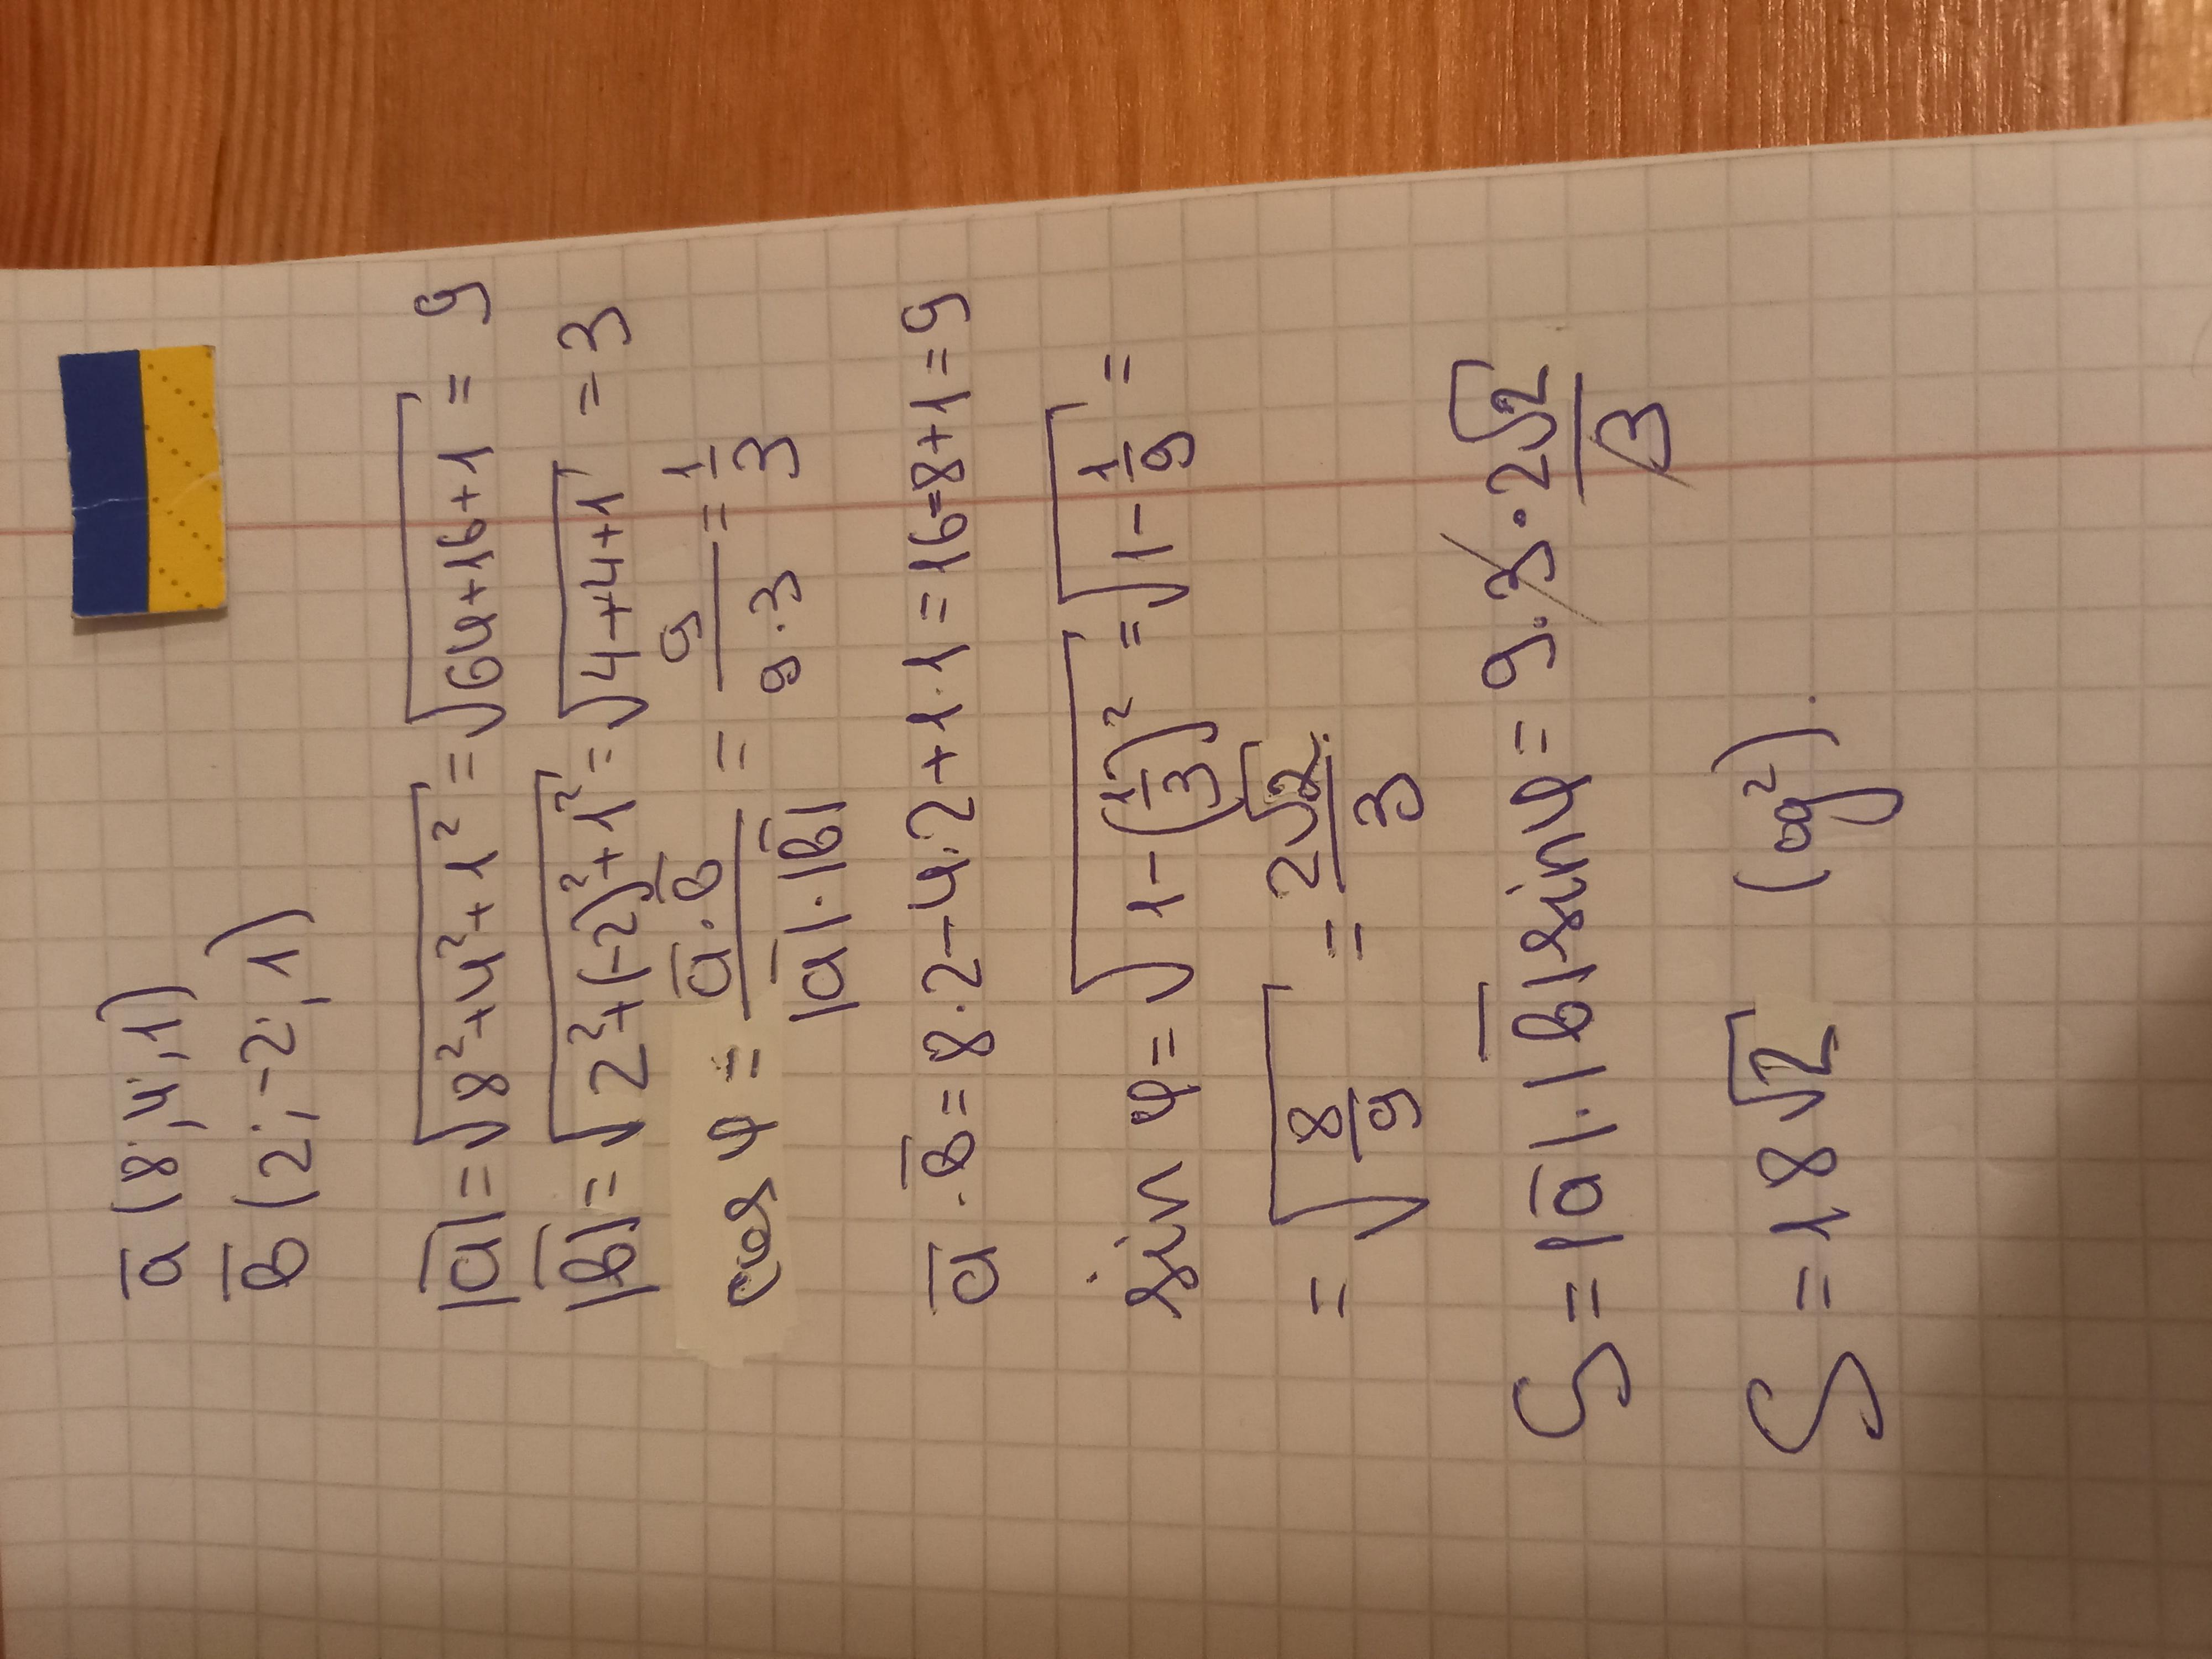 a̅ (8; 4; 1)
b̅ (2; -2; 1)
|a̅| = √(8² + 4² + 1²) = √(64 + 16 + 1) = 9
|b̅| = √(2² + (-2)² + 1²) = √(4 + 4 + 1) = 3
cos φ = (a̅ · b̅) / (|a̅| · |b̅|) = 9 / (9 · 3) = 1/3
a̅ · b̅ = 8 · 2 - 4 · 2 + 1 · 1 = 16 - 8 + 1 = 9
sin φ = √(1 - (1/3)²) = √(1 - 1/9) =
= √(8/9) = 2√2 / 3
S = |a̅| · |b̅| sin φ = 9 · 3 · 2√2 / 3
S = 18√2 (од²).